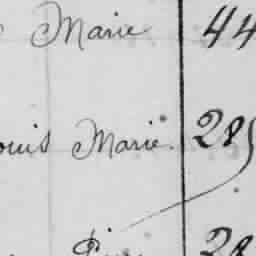 Marie 44
ouis Marie. 285
28